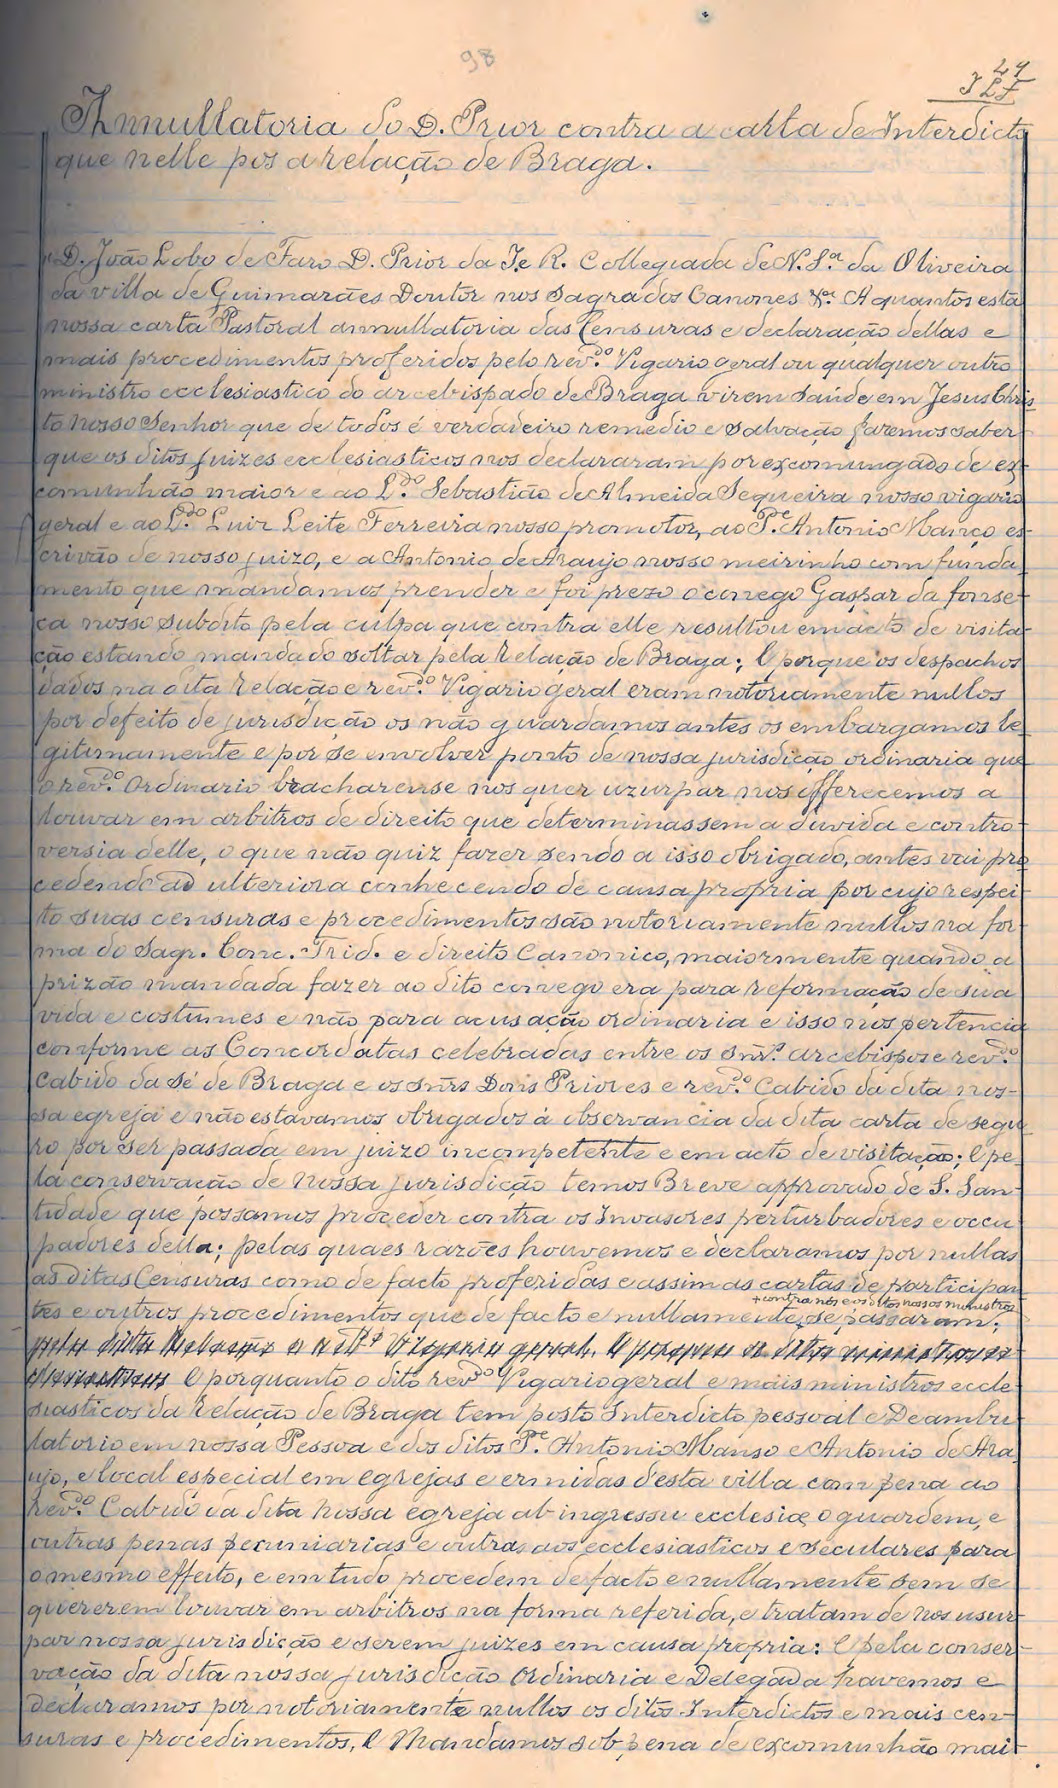 98
Annullatoria do D. Prior contra a carta de Interdicto
que nelle pos a relação de Braga.
D. João Lobo de Faro D. Prior da I. e R. Collegiada de N. S.ª da Oliveira
da villa de Guimarães Doutor nos Sagrados Canones &ª. A quantos esta
nossa carta Pastoral annullatoria das Censuras e declaração dellas e
mais procedimentos proferidos pelo rev.do Vigario geral ou qualquer outro
ministro ecclesiastico do arcebispado de Braga virem saúde em Jesus Chris
to Nosso Senhor que de todos é verdadeiro remedio e salvação fazemos saber
que os ditos juizes ecclesiasticos nos declararam por excomungado de ex-
comunhão maior e ao L.do Sebastião de Almeida Sequeira nosso vigario
geral e ao L.do Luir Leite Ferreira nosso promotor, ao P.e Antonio Manço es-
crivão de nosso juizo, e a Antonio de Araujo nosso meirinho com funda-
mento que mandamos prender e foi prezo o conego Gaspar da fonse-
ca nosso subdito pela culpa que contra elle resultou em acto de visita-
ção estando mandado soltar pela Relação de Braga; E porque os despachos
dados na dita Relação e rev.do Vigario geral eram notoriamente nullos
por defeito de jurisdição os não guardamos antes os embargamos le-
gitimamente e por se envolver ponto de nossa jurisdição ordinaria que
o rev.do Ordinario bracharense nos quer uzurpar nos offerecemos a
louvar em arbitros de direito que determinassem a duvida e contro-
versia delle, o que não quiz fazer sendo a isso obrigado, antes vai pro
cedendo ad ulteriora conhecendo de causa propria por cujo respei-
to suas censuras e procedimentos são notoriamente nullos na for-
ma do Sagr. Conc. Trid. e direito Canonico, maiormente quando a
prizão mandada fazer ao dito conego era para reformação de sua
vida e costumes e não para acusação ordinaria e isso nos pertencia
conforme as Concordatas celebradas entre os Snr.s arcebispos e rev.do
Cabido da Sé de Braga e os Snr.s Dons Priores e rev.do Cabido da dita nos-
sa egreja e não estavamos obrigados á observancia da dita carta de segu
ro por ser passada em juizo incompetente e em acto de visitação; E pe-
la conservação de nossa jurisdição temos Breve approvado de S. San-
tidade que possamos proceder contra os Invasores perturbadores e occu
padores della; pelas quaes razões houvemos e declaramos por nullas
as ditas Censuras como de facto proferidas e assim as cartas de participan
+ contra nós e os ditos nossos ministros
tes e outros procedimentos que de facto e nullamente se passaram;
E porquanto o dito rev.do Vigario geral e mais ministros eccle-
siasticos da Relação de Braga tem posto Interdicto pessoal e Deambu-
latorio em nossa Pessoa e dos ditos P.e Antonio Manso e Antonio de Ara-
ujo, e local especial em egrejas e ermidas d'esta villa com pena ao
rev.do Cabido da dita nossa egreja ab ingressu ecclesiæ o guardem, e
outras penas pecuniarias e outras aos ecclesiasticos e seculares para
o mesmo effeito, e em tudo procedem de facto e nullamente sem se
quererem louvar em arbitros na forma referida, e tratam de nos usur-
par nossa jurisdição e serem juizes em causa propria: E pela conser-
vação da dita nossa jurisdicção Ordinaria e Delegada havemos e
declaramos por notoriamente nullos os ditos Interdictos e mais cen-
suras e procedimentos, E Mandamos sob pena de excomunhão mai-